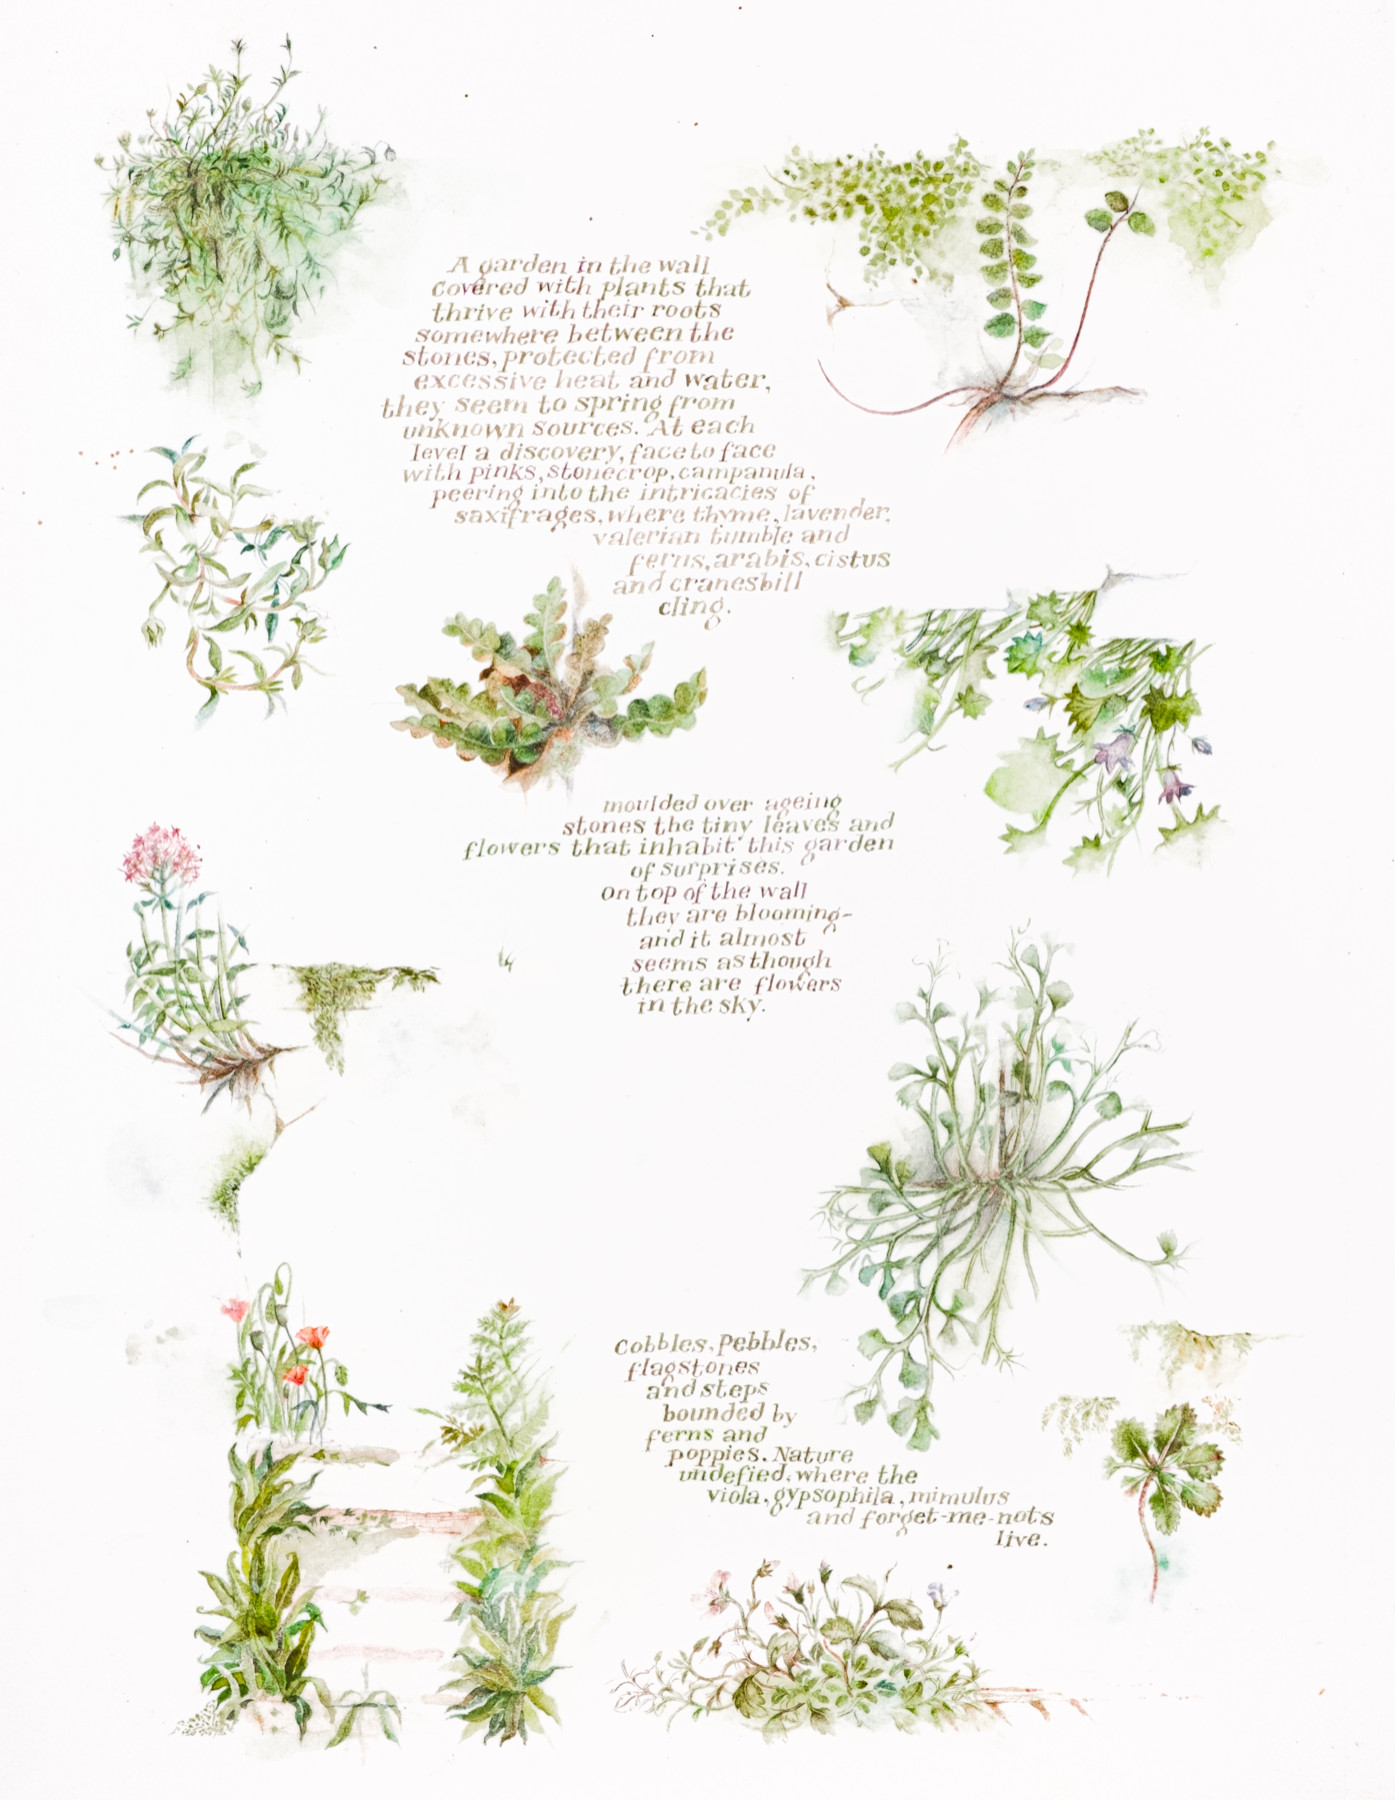 A garden in the wall
covered with plants that
thrive with their roots
somewhere between the
stones, protected from
excessive heat and water,
they seem to spring from
unknown sources. At each
level a discovery, face to face
with pinks, stonecrop, campanula,
peering into the intricacies of
saxifrages, where thyme, lavender,
valerian tumble and
ferns, arabis, cistus
and cranesbill
cling.
moulded over ageing
stones the tiny leaves and
flowers that inhabit this garden
of surprises.
on top of the wall
they are blooming-
and it almost
seems as though
there are flowers
in the sky.
Cobbles, Pebbles,
flagstones
and steps
bounded by
ferns and
poppies. Nature
undefied, where the
viola, gypsophila, mimulus
and forget-me-nots
live.